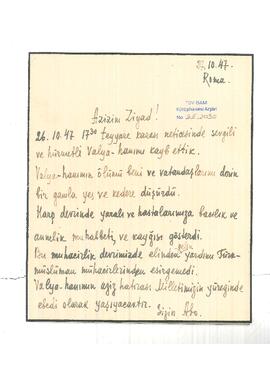 29.10.47.
Roma.
TÜV BAM
Kütüphanesi Arşivi
No
Azizim Ziyad!
26.10.47 17³⁰ teyyare kazası neticesinde sevgili
ve hürmetli Valya-hanımı kayb ettik.
Valya-hanımın ölümü beni ve vatandaşlarımı derin
bir gamla yes ve kedere düşürdü.
Harp devrinde yaralı ve hastalarımıza bacılık ve
annelik muhabbeti ve kaygısı gösterdi.
Bu muhacirlik devrimizde elinden gelen yardımı Türk-
müslüman mühacirlerinden esirgemedi.
Valya-hanımın aziz hatırası Milletimizin yüreğinde
ebedi olarak yaşıyacaktır.